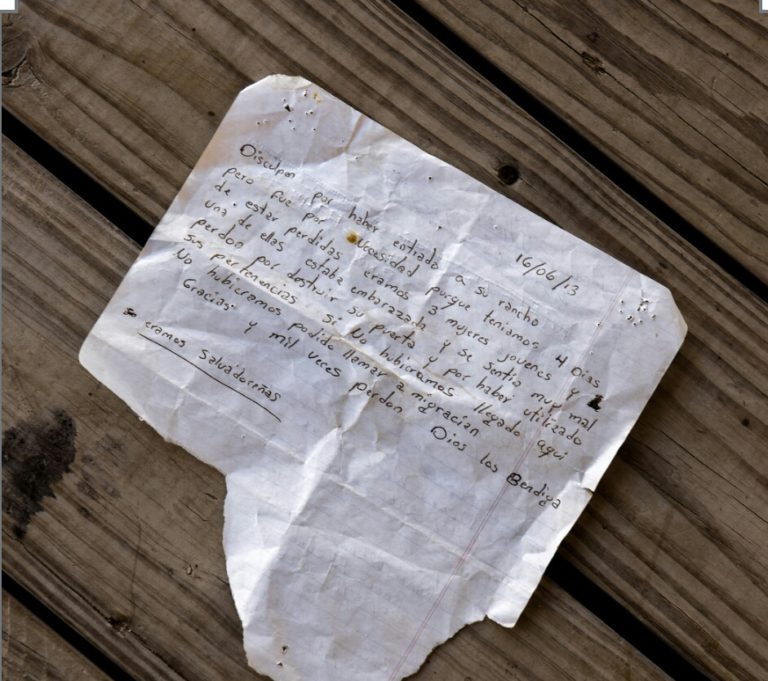 16/06/13
Disculpen por haber entrado a su rancho
pero fue por necesidad porque teniamos 4 Dias
de estar perdidas eramos 3 mujeres jovenes y 1
una de elas estaba enbarazada y se sentia muy mal
perdon por destruir su puerta y por haber utilizado
sus pertenencias. si no hubieramos llegado aqui
No hubieramos podido llamar a migracian
Gracias y mil veces perdon. Dios los Bendiga
eramos Salvadoreñas